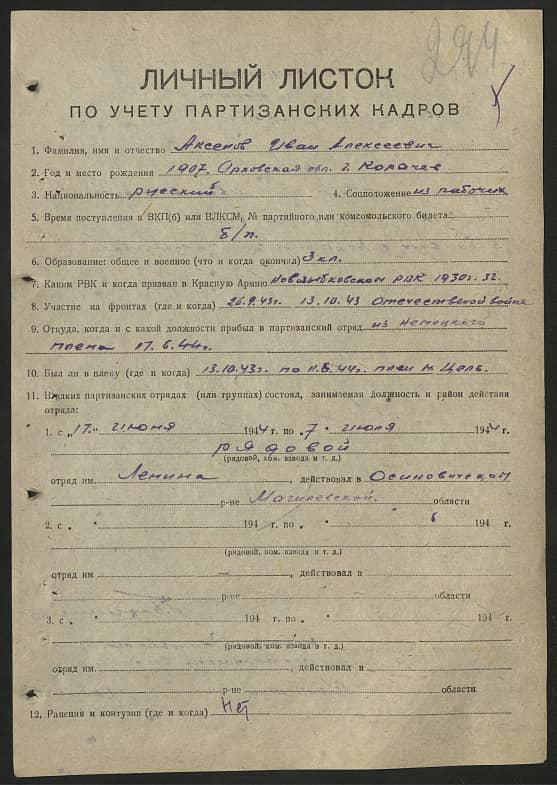 294
ЛИЧНЫЙ ЛИСТОК
ПО УЧЕТУ ПАРТИЗАНСКИХ КАДРОВ
1. Фамилия, имя и отчество Аксенов Иван Алексеевич
2. Год и место рождения 1907. Орловская обл. г. Карачев
3. Национальность русский 4. Соцположение из рабочих
5. Время поступления в ВКП(б) или ВЛКСМ, № партийного или комсомольского билета
б/п.
6. Образование: общее и военное (что и когда окончил) 3 кл.
7. Каком РВК и когда призван в Красную Армию Новозыбковском РВК 1930г. 32.
8. Участие на фронтах (где и когда) 26.9.43г. 13.10.43 Отечественной войне
9. Откуда, когда и с какой должности прибыл в партизанский отряд из немецкого
плена 17.6.44г.
10. Был ли в плену (где и когда) 13.10.43г. по 11.6.44г. плен м. Цель.
11. В каких партизанских отрядах (или группах) состоял, занимаемая должность и район действия
отряда:
1. с „17." июня 1944 г. по „7" июля 1944 г.
рядовой
(рядовой, ком. взвода и т. д.)
отряд им. Ленина, действовал в Осиповичском
р-не Магилевской. области
2. с „ " 194 г. по „ " 194 г.
(рядовой, ком. взвода и т. д.)
отряд им — , действовал в
р-не области
3. с „ " 194 г. по „ " 194 г.
(рядовой, ком. взвода и т. д.)
отряд им. , действовал в
р-не области
12. Ранения и контузии (где и когда) Нет